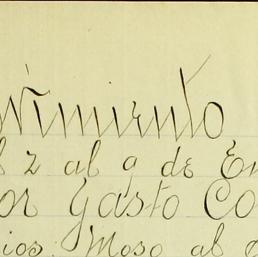 nimiento
l 2 al 9 de En
or Gasto Co
ios Moso al